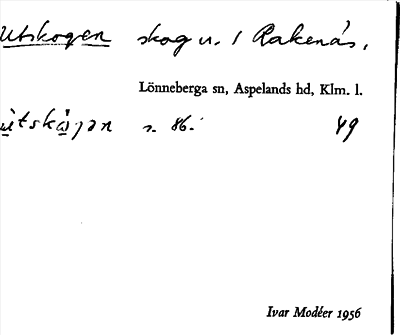 Utskogen skog u. / Rakenäs.
Lönneberga sn, Aspelands hd, Klm. l.
s. 86. 49
Ivar Modéer 1956